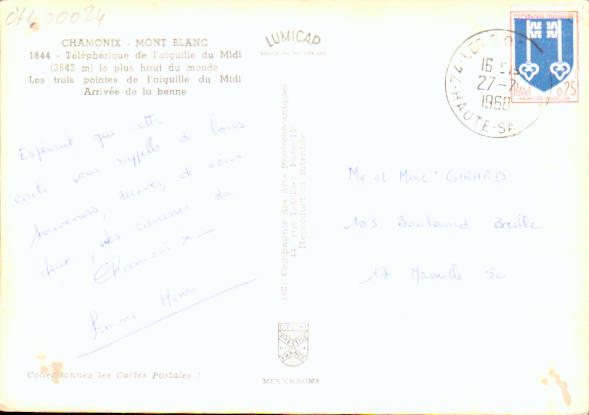 07400024
CHAMONIX - MONT BLANC
1844 - Téléphérique de l'aiguille du Midi
(3842 m) le plus haut du monde
Les trois pointes de l'aiguille du Midi
Arrivée de la benne
LUMICAP
REPUBLIQUE FRANCAISE
0,25
MONT-DE-MARSAN
16
27-7
1968
HAUTE-S
Esperant que cette
carte vous rappelle de bons
souvenirs, recevez de nous
deux, des caresses de
Chamonix
Henri
Mr et Mme GIRARD
103 Boulevard Baille
13 Marseille 5e
(02) Compagnie des Arts Photomécaniques
44, rue Letellier, Paris-15
Reproduction interdite
Collectionnez les Cartes Postales !
MEXICHROME